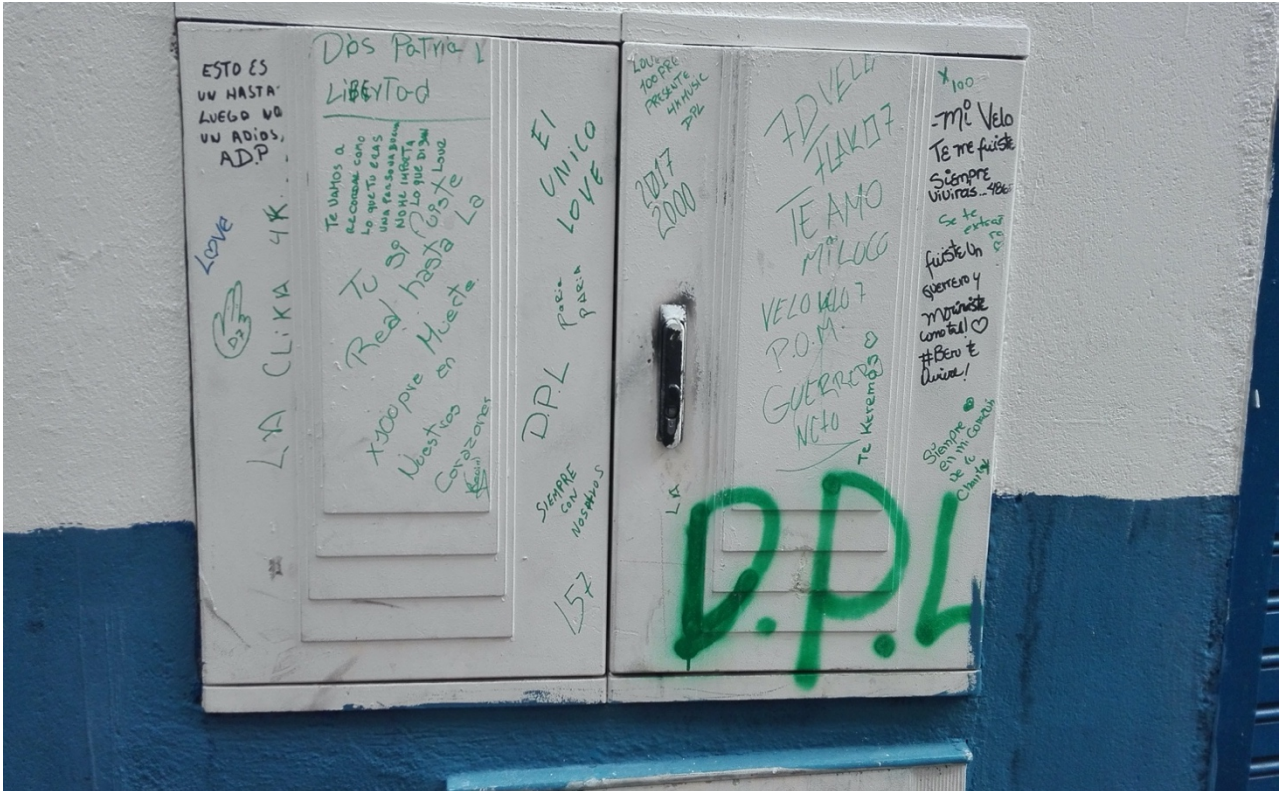 ESTO ES
UN HASTA
LUEGO NO
UN ADIOS,
A.D.P
LOVE
LA CLIKA 4K...
Dios Patria Y
LiBErTad
TE VAMOS A
RECORDAR COMO
LO QUE TU ERAS
UNA PERSONA
NO ME IMPORTA
LO QUE DIGAN
LOVE
Tu si Fuiste
Real hasta La
Muerte
x100pre en
Nuestros
Corazones
El
UNICO
LOVE
PARIA
PARIA
D.P.L
SIEMPRE
CON
NOSOTROS
L57
LOVE
100PRE
PRESENTE
4K MUSIC
DPL
2017
2000
7D VELO
FLAKO7
TE AMO
Mi LOCO
VELO VELO7
P.O.M.
GUERRERO
NCTO
Te Keremos
LA
D.P.L
x100
-Mi Velo
Te me fuiste
Siempre
viviras...
Se te
extraña
fuiste Un
guerrero y
moriniste
como tal!
#Bero te
Siempre
en mi Corazon
De la